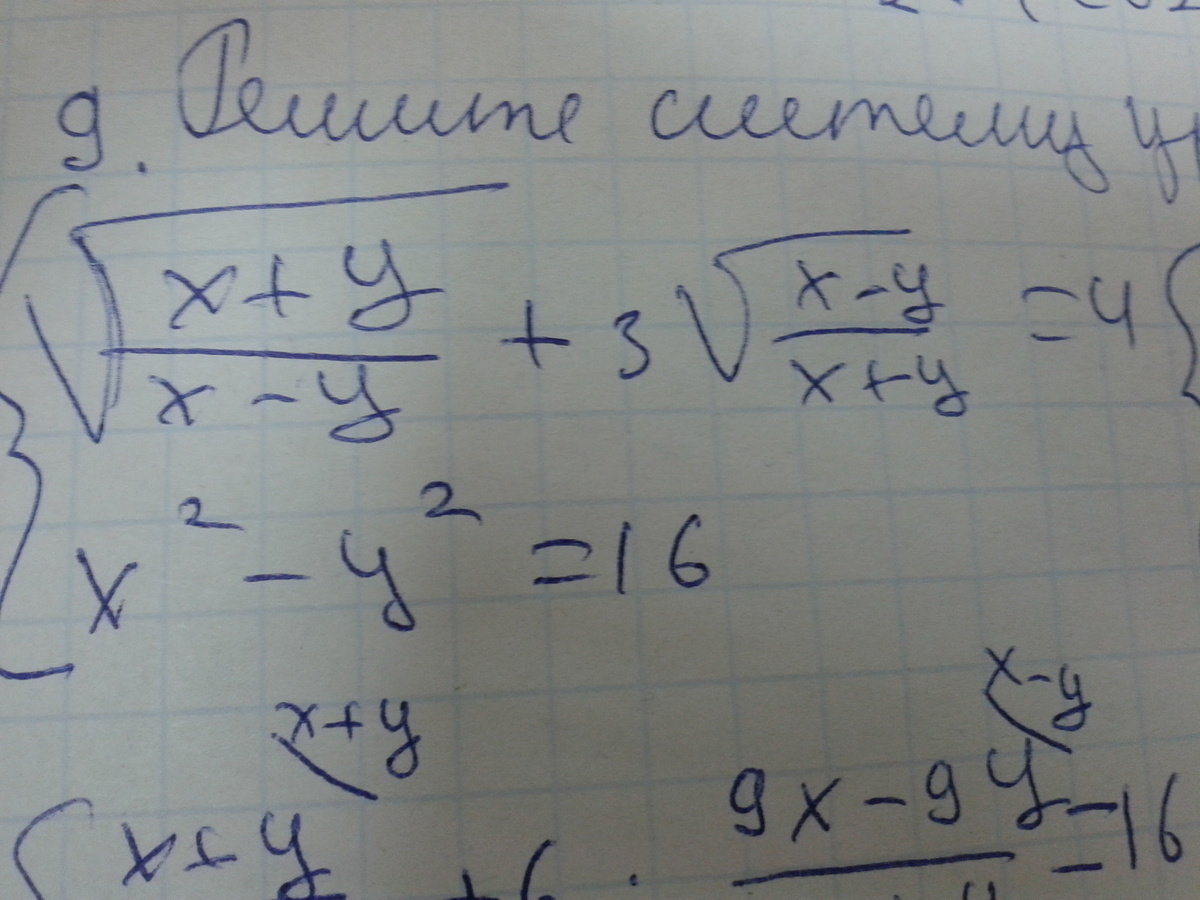 9. Решите систему
√(x+y)/(x-y) + 3√(x-y)/(x+y) = 4
x² - y² = 16
x+y
x-y
x+y + 6 · 9x-9y = 16